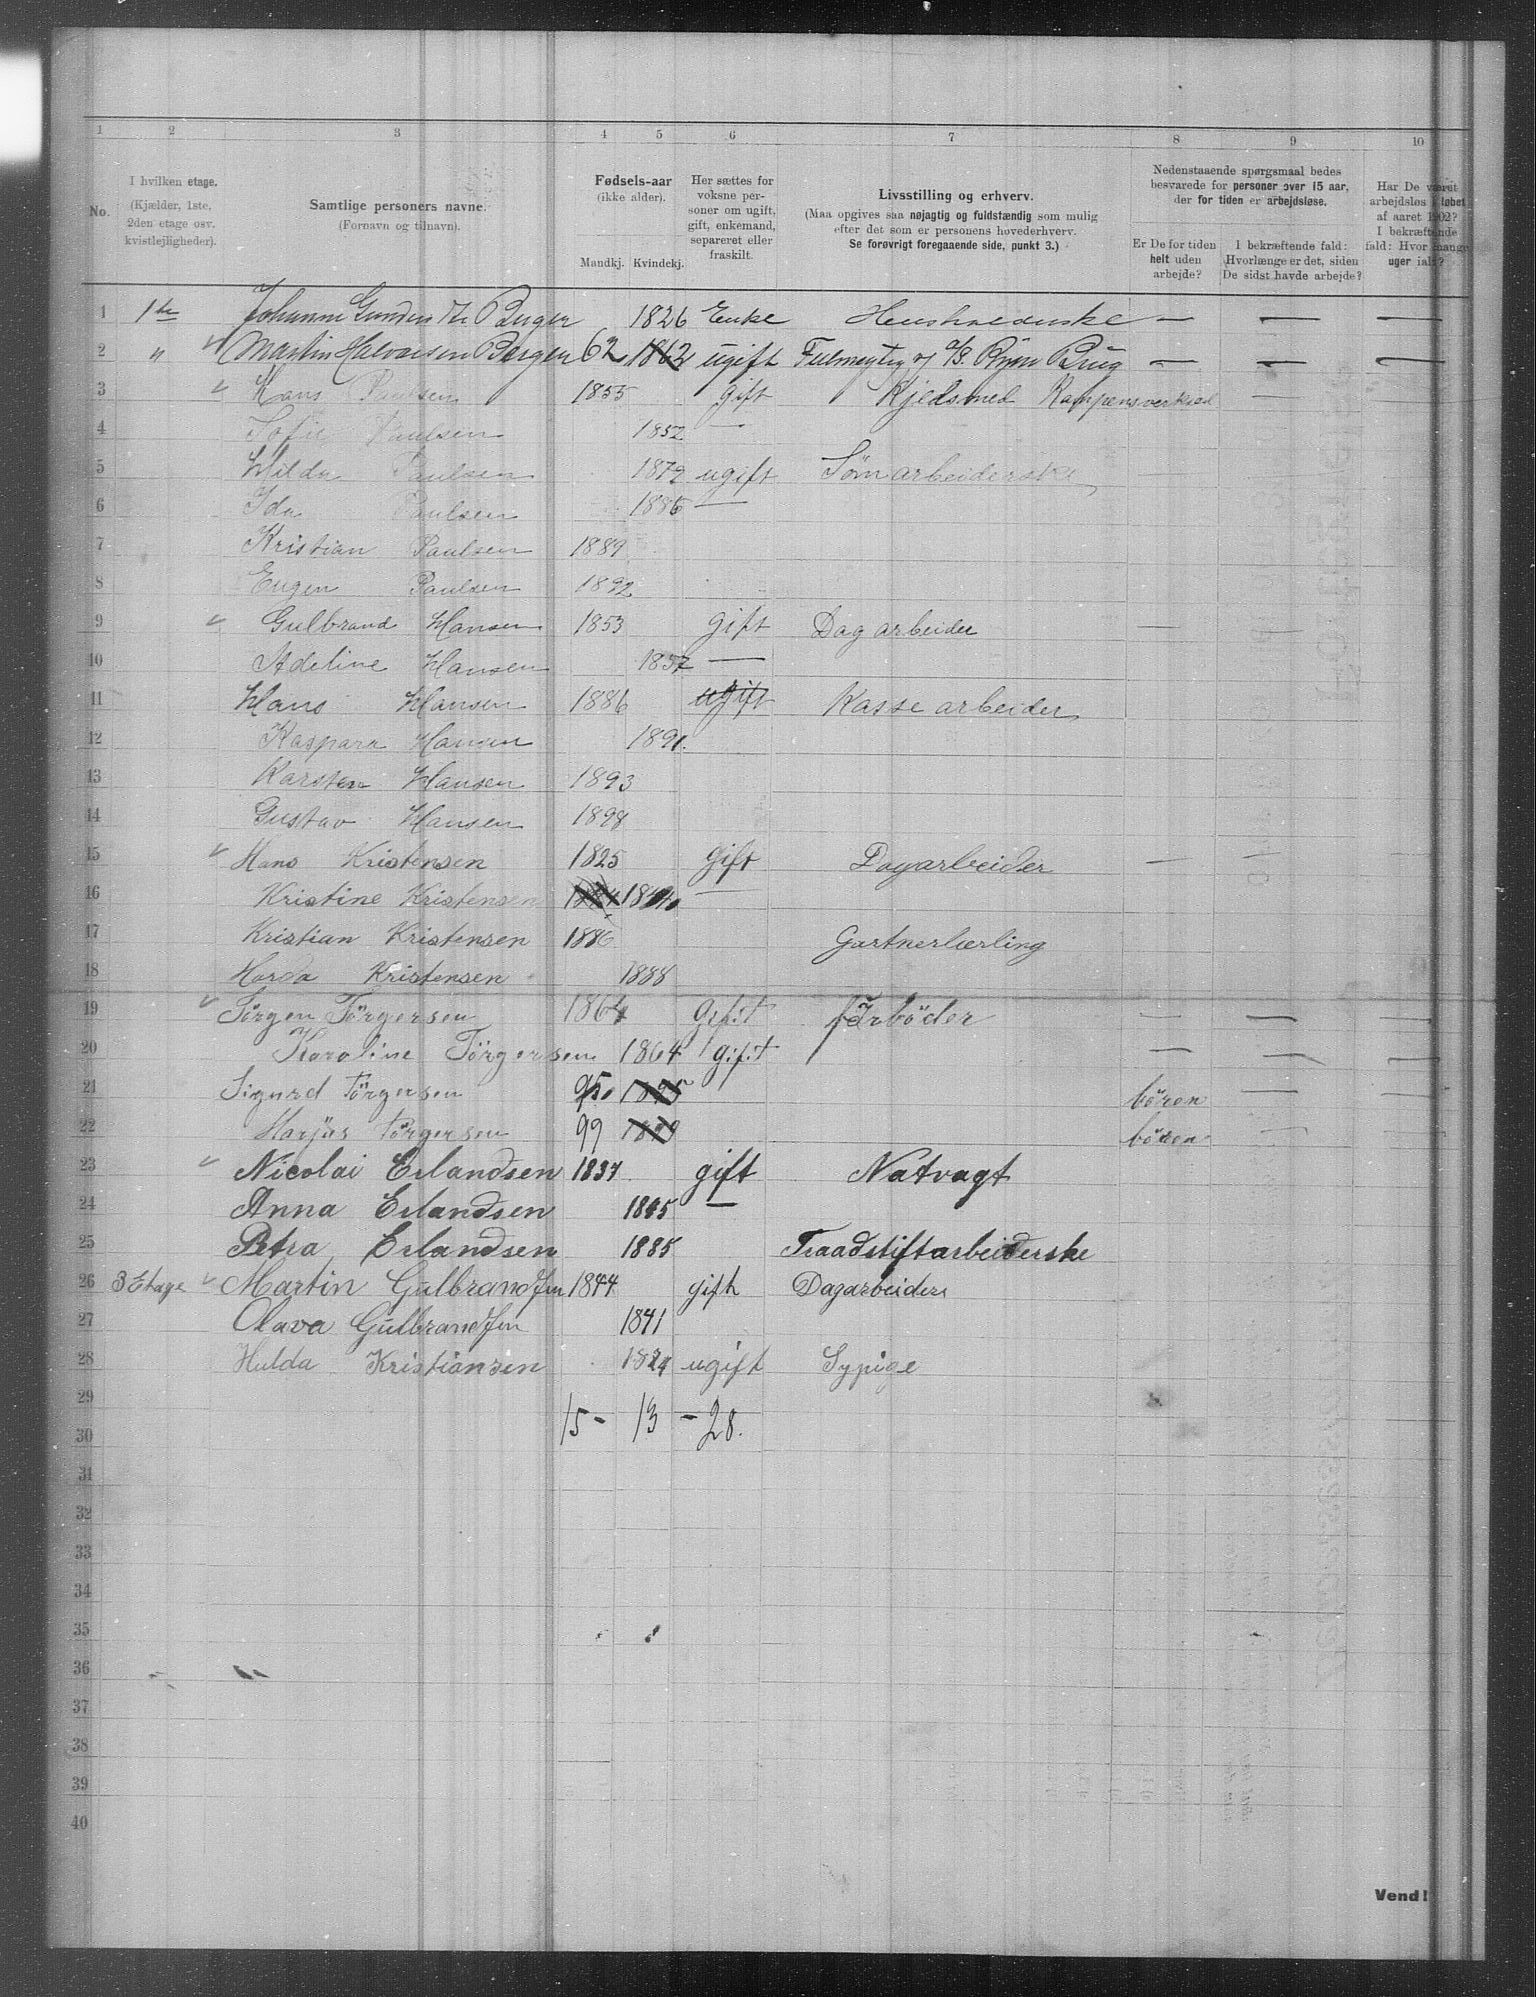 1 2 3 4 5 6 7 8 9 10
No.
I hvilken etage.
(Kjælder, 1ste, 2den etage osv. kvistlejligheder).
Samtlige personers navne.
(Fornavn og tilnavn).
Fødsels-aar
(ikke alder).
Mandkj. Kvindekj.
Her sættes for voksne personer om ugift, gift, enkemand, separeret eller fraskilt.
Livsstilling og erhverv.
(Maa opgives saa nøjagtig og fuldstændig som mulig
efter det som er personens hovederhverv.
Se forøvrigt foregaaende side, punkt 3.)
Nedenstaaende spørgsmaal bedes
besvarede for personer over 15 aar,
der for tiden er arbejdsløse.
Er De for tiden helt uden arbejde?
I bekræftende fald: Hvorlænge er det, siden De sidst havde arbejde?
Har De været arbejdsløs i løbet af aaret 1902? I bekræftende fald: Hvor mange uger ialt?
1 1te Johanne 1826 Enke — — —
2 " Martin Halvorsen Bergen 62 1862 ugift — — —
3 Hans Paulsen 1855 gift Kjedsmed Kampensverksted —
4 Sofie Paulsen 1852 —
5 Hilda Paulsen 1879 ugift Sömarbeiderske
6 Ida Paulsen 1885 —
7 Kristian Paulsen 1889
8 Eugen Paulsen 1892
9 Gulbrand Hansen 1853 gift Dagarbeider —
10 Adeline Hansen 1857 —
11 Hans Hansen 1886 ugift Kassearbeider
12 Kaspara Hansen 1891.
13 Karsten Hansen 1893
14 Gustav Hansen 1898
15 Hans Kristensen 1825 gift Dagarbeider — —
16 Kristine Kristensen —
17 Kristian Kristensen 1886 Gartnerlærling
18 Kristensen 1888
19 Törgersen 1864 Gift — — —
20 Karoline Törgersen 1864 gift — — —
21 Sigurd Törgersen 95 1895 bören — —
22 Törgersen 99 1899 bören
23 Nicolai Erlandsen 1837 gift Natvagt
24 Anna Erlandsen 1845 —
25 Petra Erlandsen 1885 Traadstiftarbeiderske
26 3 Etage Martin Gulbrandsen 1844 gift Dagarbeider
27 Olava Gulbrandsen 1841
28 Hulda Kristiansen ugift Sypige
29
15 - 13 - 28.
30
31
32
33
34
35
36
37
38
39
40
Vend!